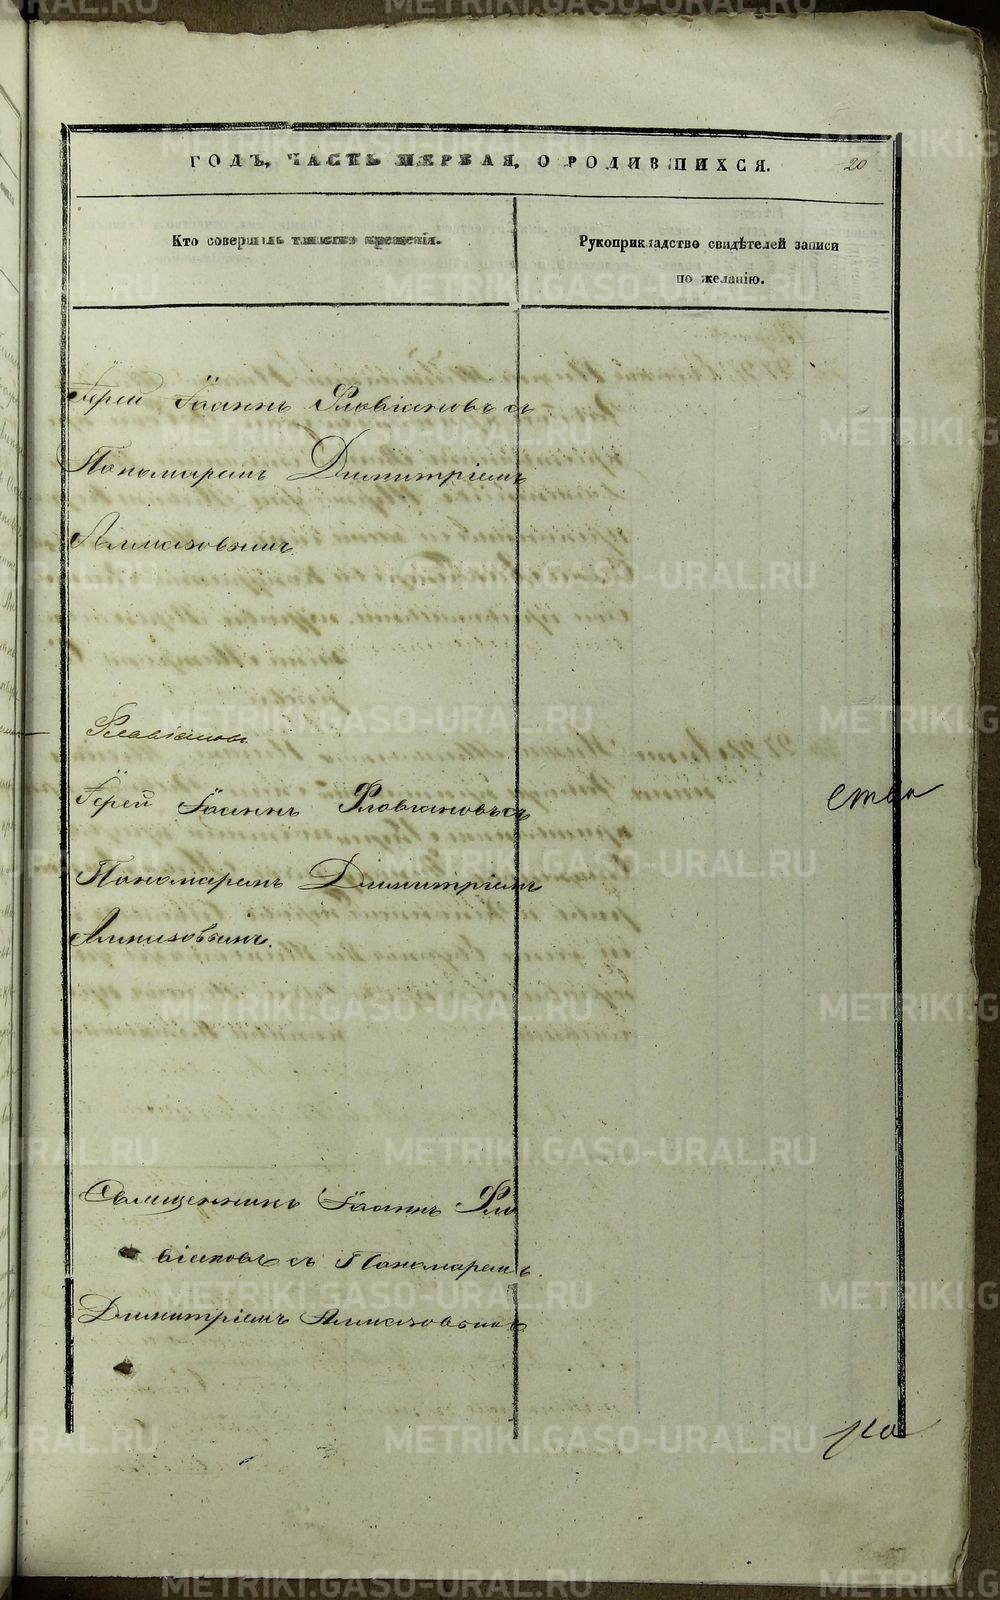 ГОДЪ, ЧАСТЬ ПЕРВАЯ, О РОДИВШИХСЯ.
20
Кто совершалъ таинство крещенія.
Рукоприкладство свидѣтелей записи
по желанію.
Іерей Іоаннъ Флавіановъ съ
Пономаремъ Димитріемъ
Алмазовымъ.
Флавіановъ.
Іерей Іоаннъ Флавіановъ съ
Пономаремъ Димитріемъ
Алмазовымъ.
Священникъ Іоаннъ Фла
віановъ съ Пономаремъ
Димитріемъ Алмазовымъ
METRIKI.GASO-URAL.RU